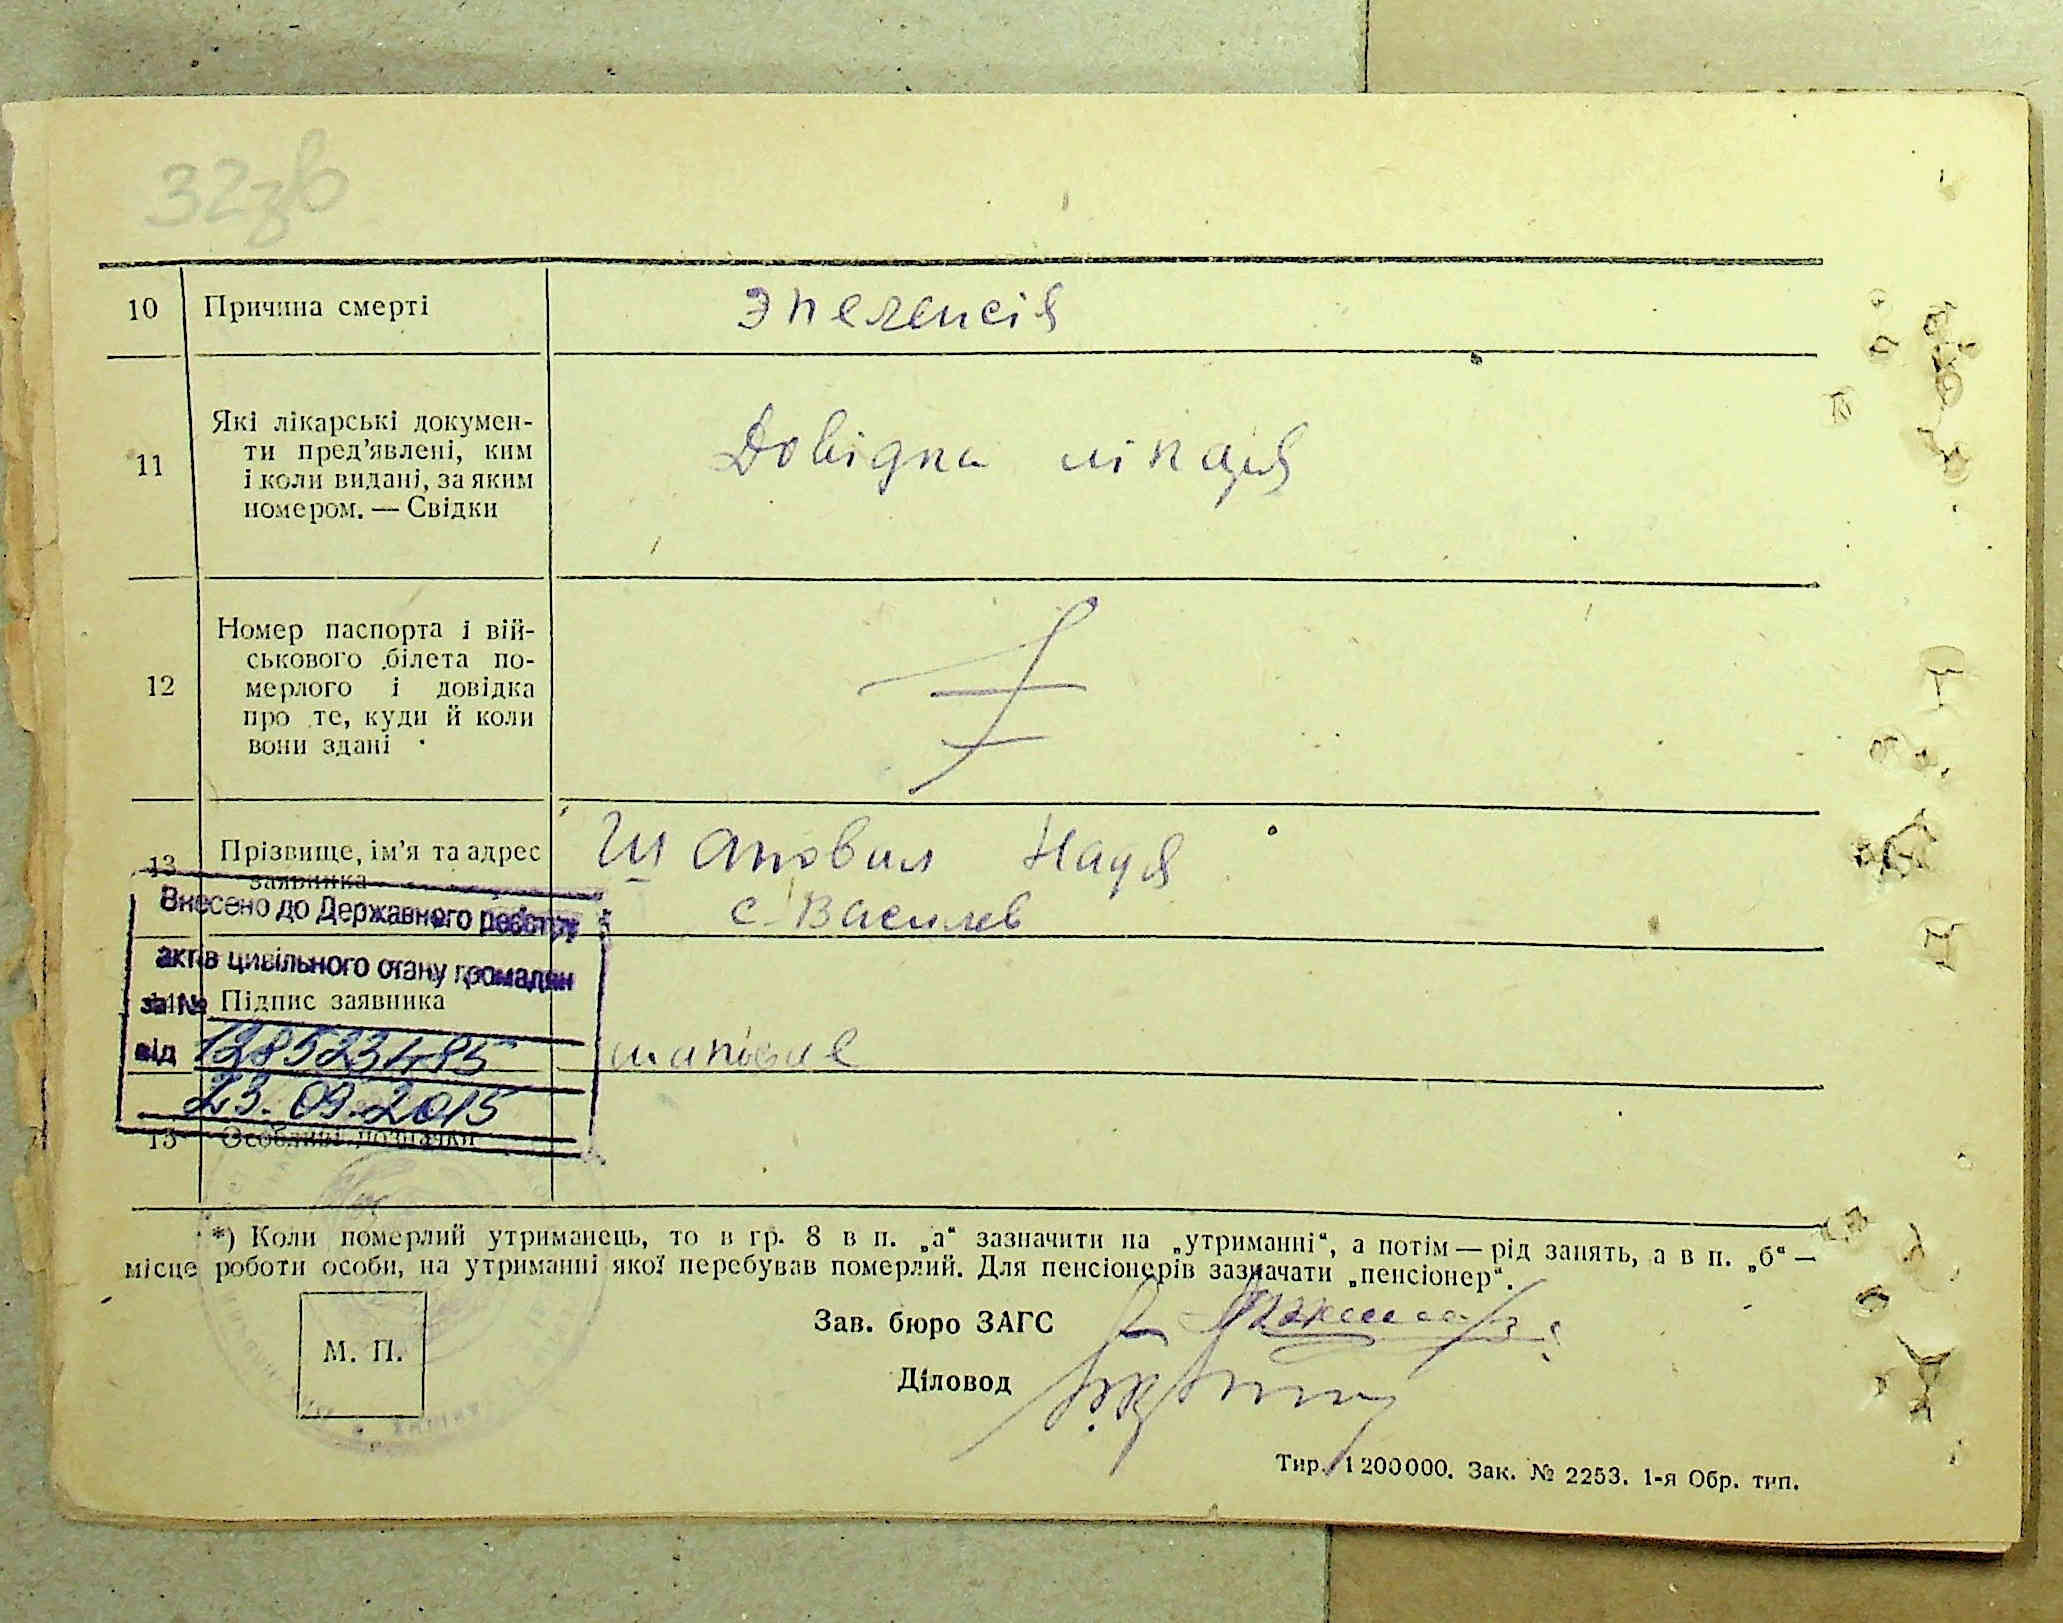 32зв
10 Причина смерті эпелепсія
11 Які лікарські докумен-
ти пред’явлені, ким
і коли видані, за яким
номером. — Свідки
Довідка лікаря
12 Номер паспорта і вій-
ськового білета по-
мерлого і довідка
про те, куди й коли
вони здані
13 Прізвище, ім’я та адрес
заявника
Шаповал Надя
с. Василев
Внесено до Державного реєстру
актів цивільного стану громадян
за №
14 Підпис заявника
від 128523485
шаповал
23.09.2015
15 Особливі позначки
*) Коли померлий утриманець, то в гр. 8 в п. „а“ зазначити на „утриманні“, а потім — рід занять, а в п. „б“ —
місце роботи особи, на утриманні якої перебував померлий. Для пенсіонерів зазначати „пенсіонер“.
М. П.
Зав. бюро ЗАГС
Діловод
Тир. 1 200 000. Зак. № 2253. 1-я Обр. тип.